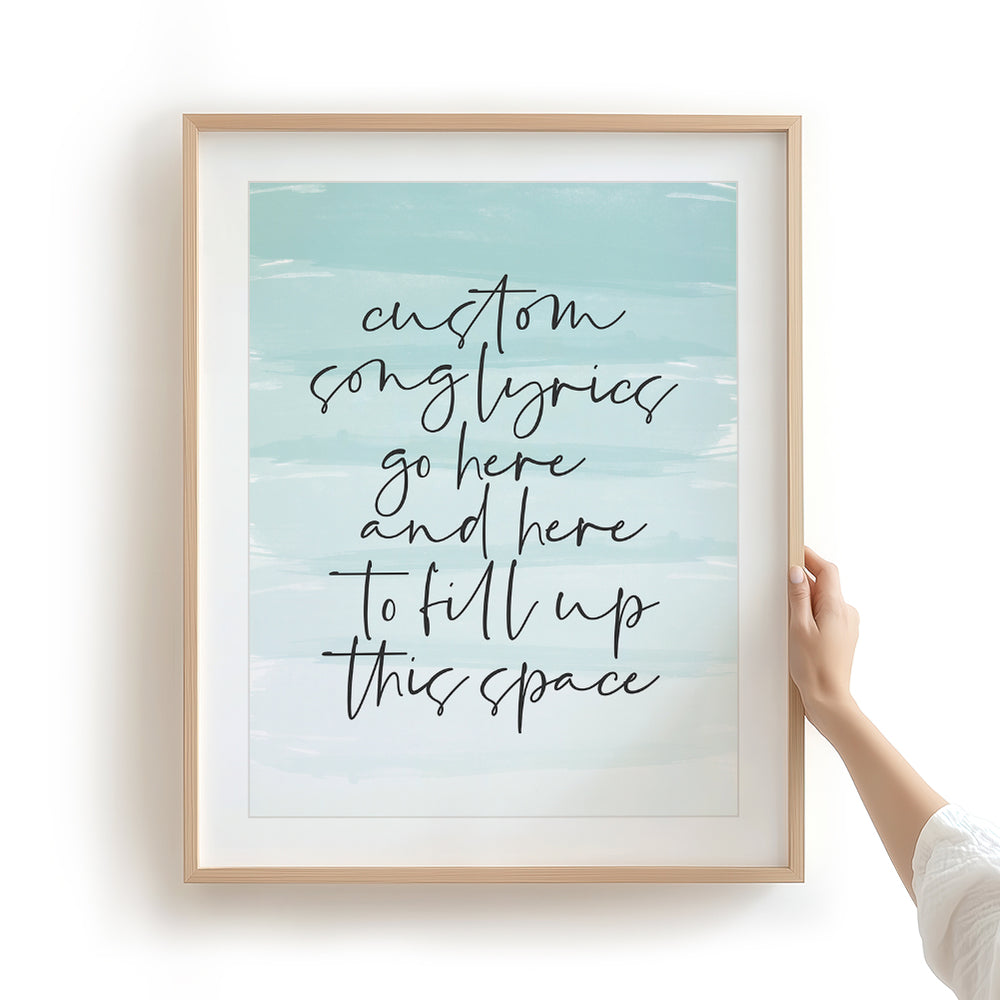 custom
song lyrics
go here
and here
to fill up
this space